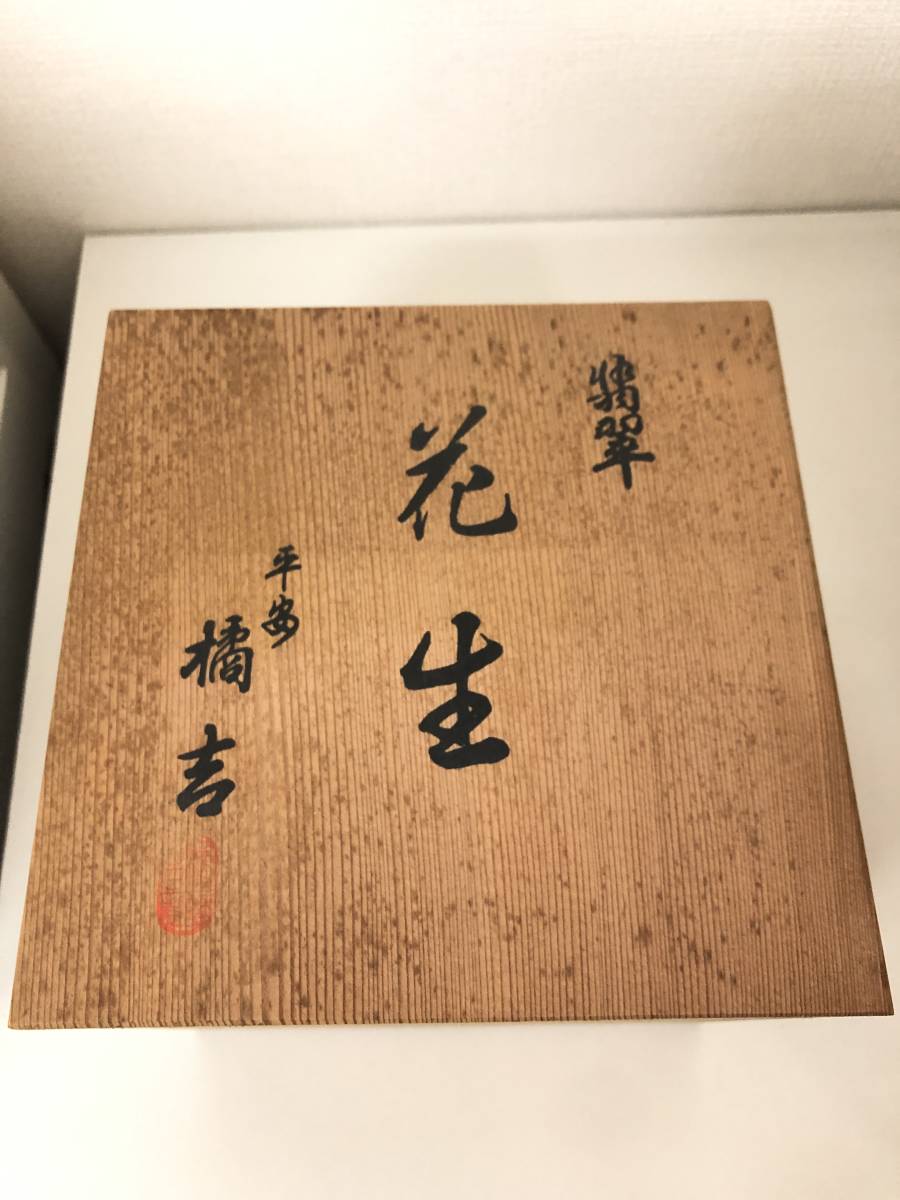 翡翠
花生
平安
橘吉